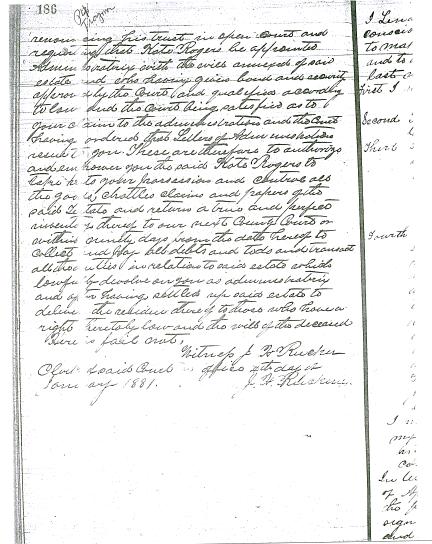 186
renouncing his trust in open Court and
requiring that Kate Rogers be appointed
Administratrix with the will annexed of said
estate and who having given bond and security
approved by the Court and qualified according
to law and the Court being satisfied as to
your claim to the administration and the Court
having ordered that Letters of Administration
issue to you These are therefore to authorize
and empower you the said Kate Rogers to
take into your possession and control all
the goods, chattles claims and papers of the
said Testato and return a true and perfect
inventory thereof to our next County Court or
within ninety days from the date hereof to
collect and pay all debts and to do and transact
all the duties in relation to said estate which
lawfully devolve on you as administratrix
and after having settled up said estate to
deliver the residue thereof to those who have a
right thereto by law and the will of the deceased
Herein fail not,
Witness J. H. Rucker
Clerk of said Court office day of
January 1881.
J. H. Rucker
I
to
and to
last
First I
Second
Third
Fourth
I
my
In
of
the
sign
and